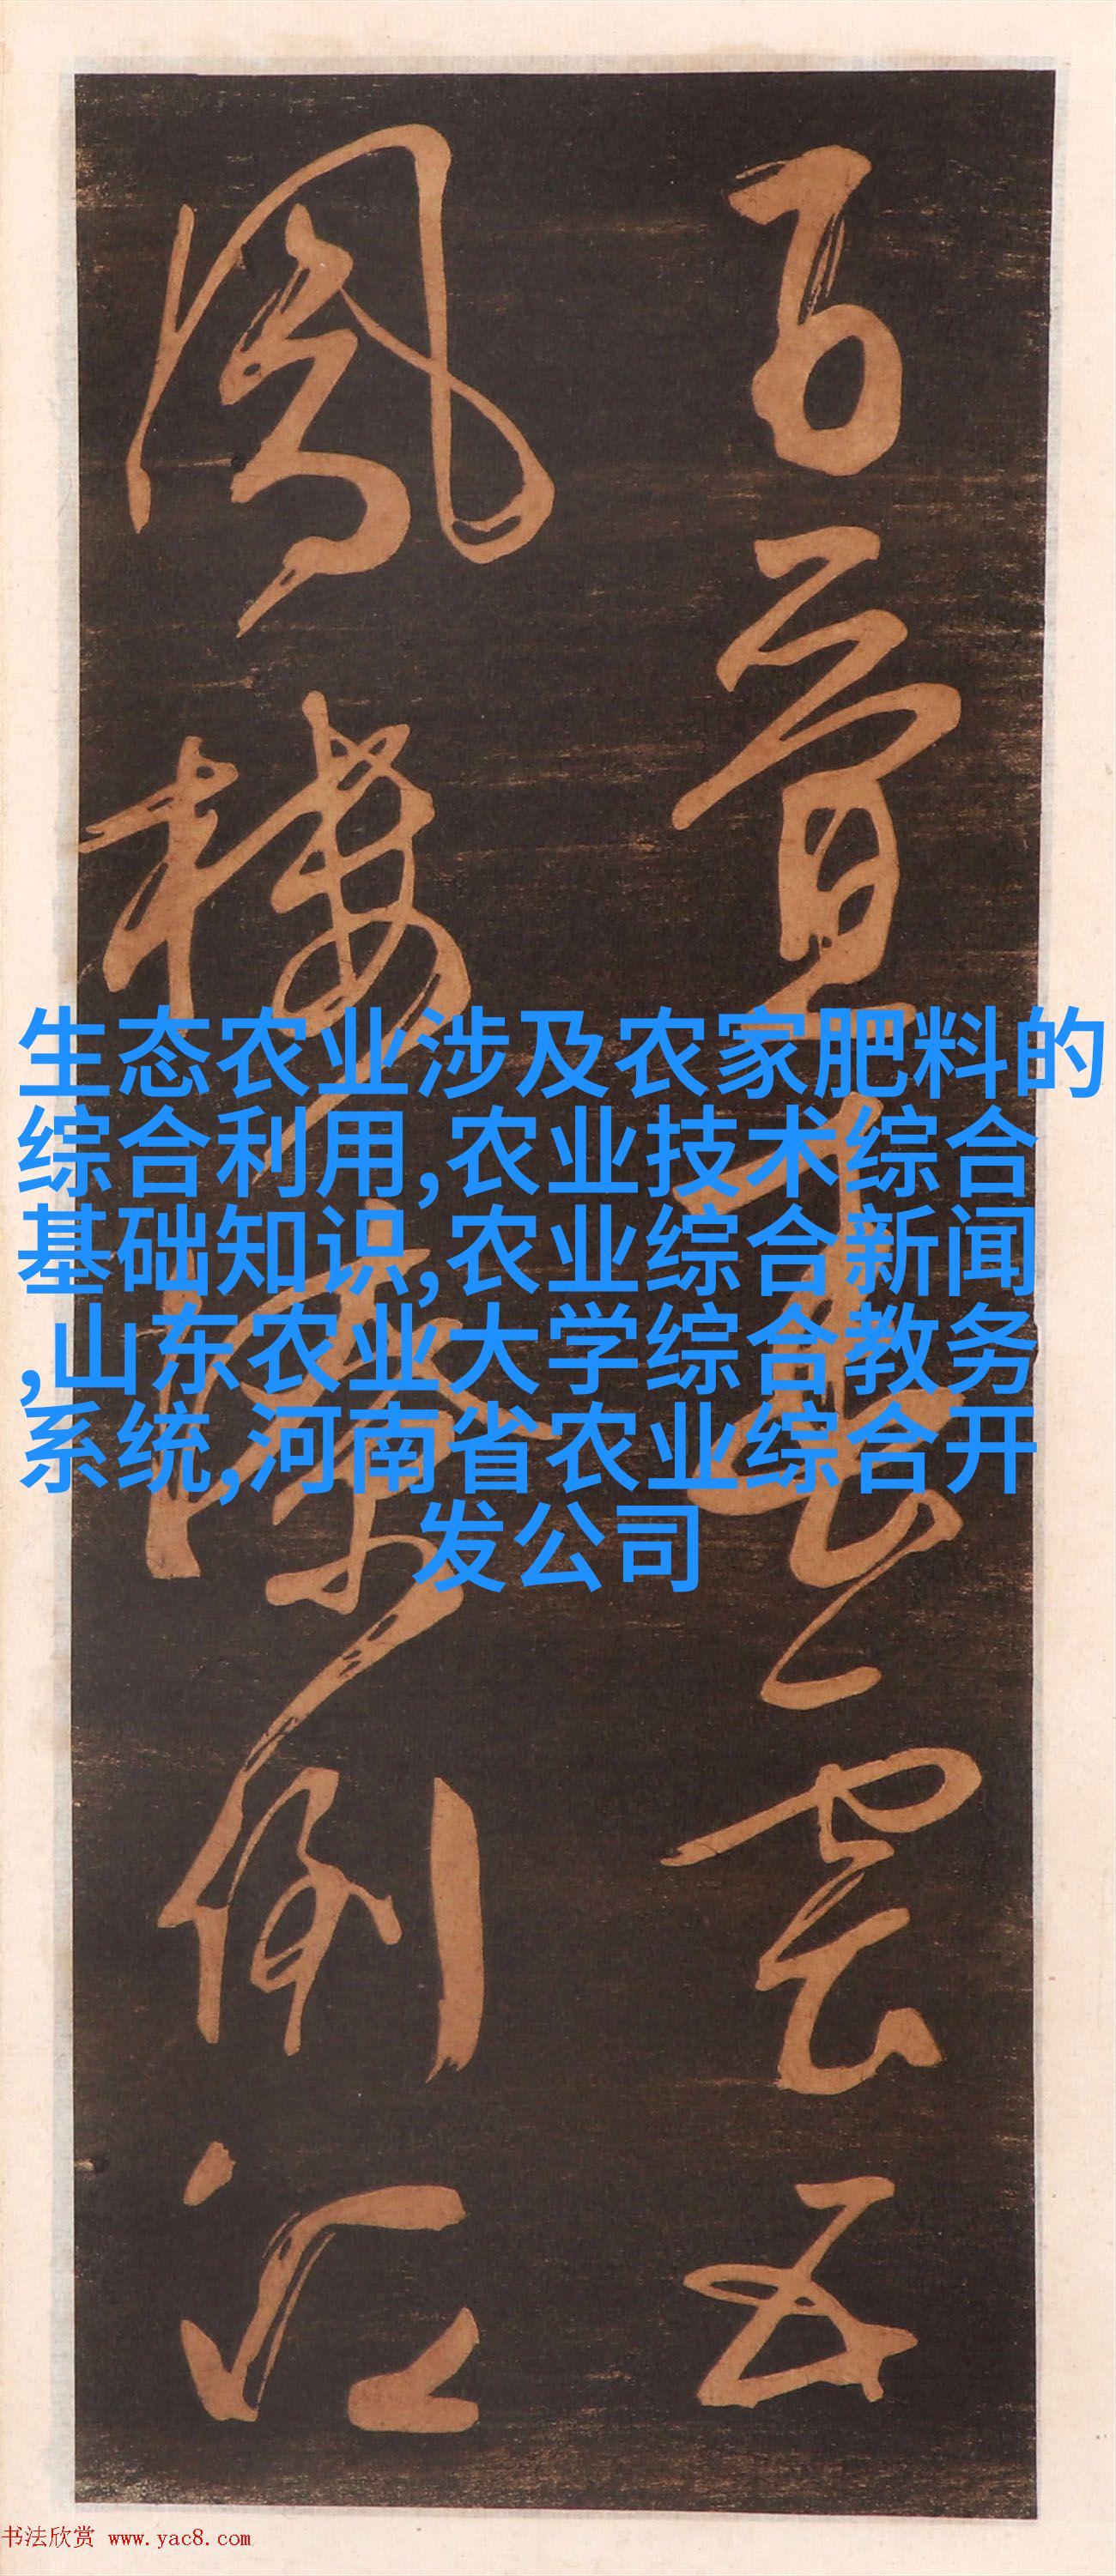 百五
鳳樓江
生态农业涉及农家肥料的
综合利用,农业技术综合
基础知识,农业综合新闻
,山东农业大学综合教务
系统,河南省农业综合开
发公司
书法欣赏 www.yac8.com